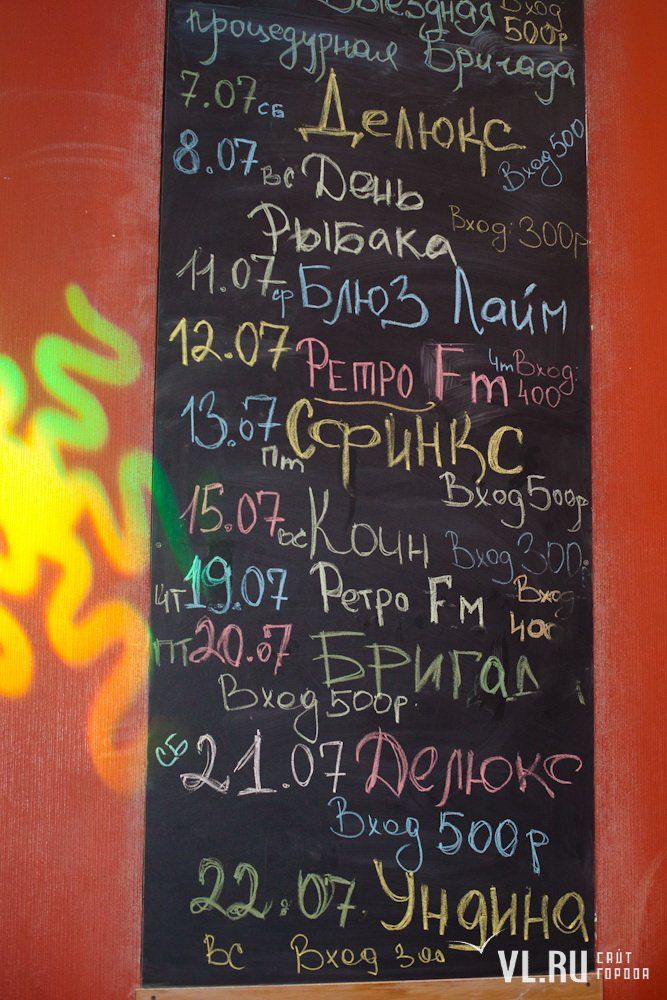 Выездная Вход
500р
процедурная Бригада
7.07 сб Делюкс Вход 500
8.07 вс День
Рыбака Вход: 300р
11.07 ср Блюз Лайм
12.07 чт Ретро Fm Вход:
400
13.07 пт Сфинкс
Вход 500р
15.07 вс Коин Вход 300р
чт 19.07 Ретро Fm Вход
400
пт 20.07 Бригад
Вход 500р.
сб 21.07 Делюкс
Вход 500р
22.07. Ундина
вс Вход 300
VL.RU сайт
города